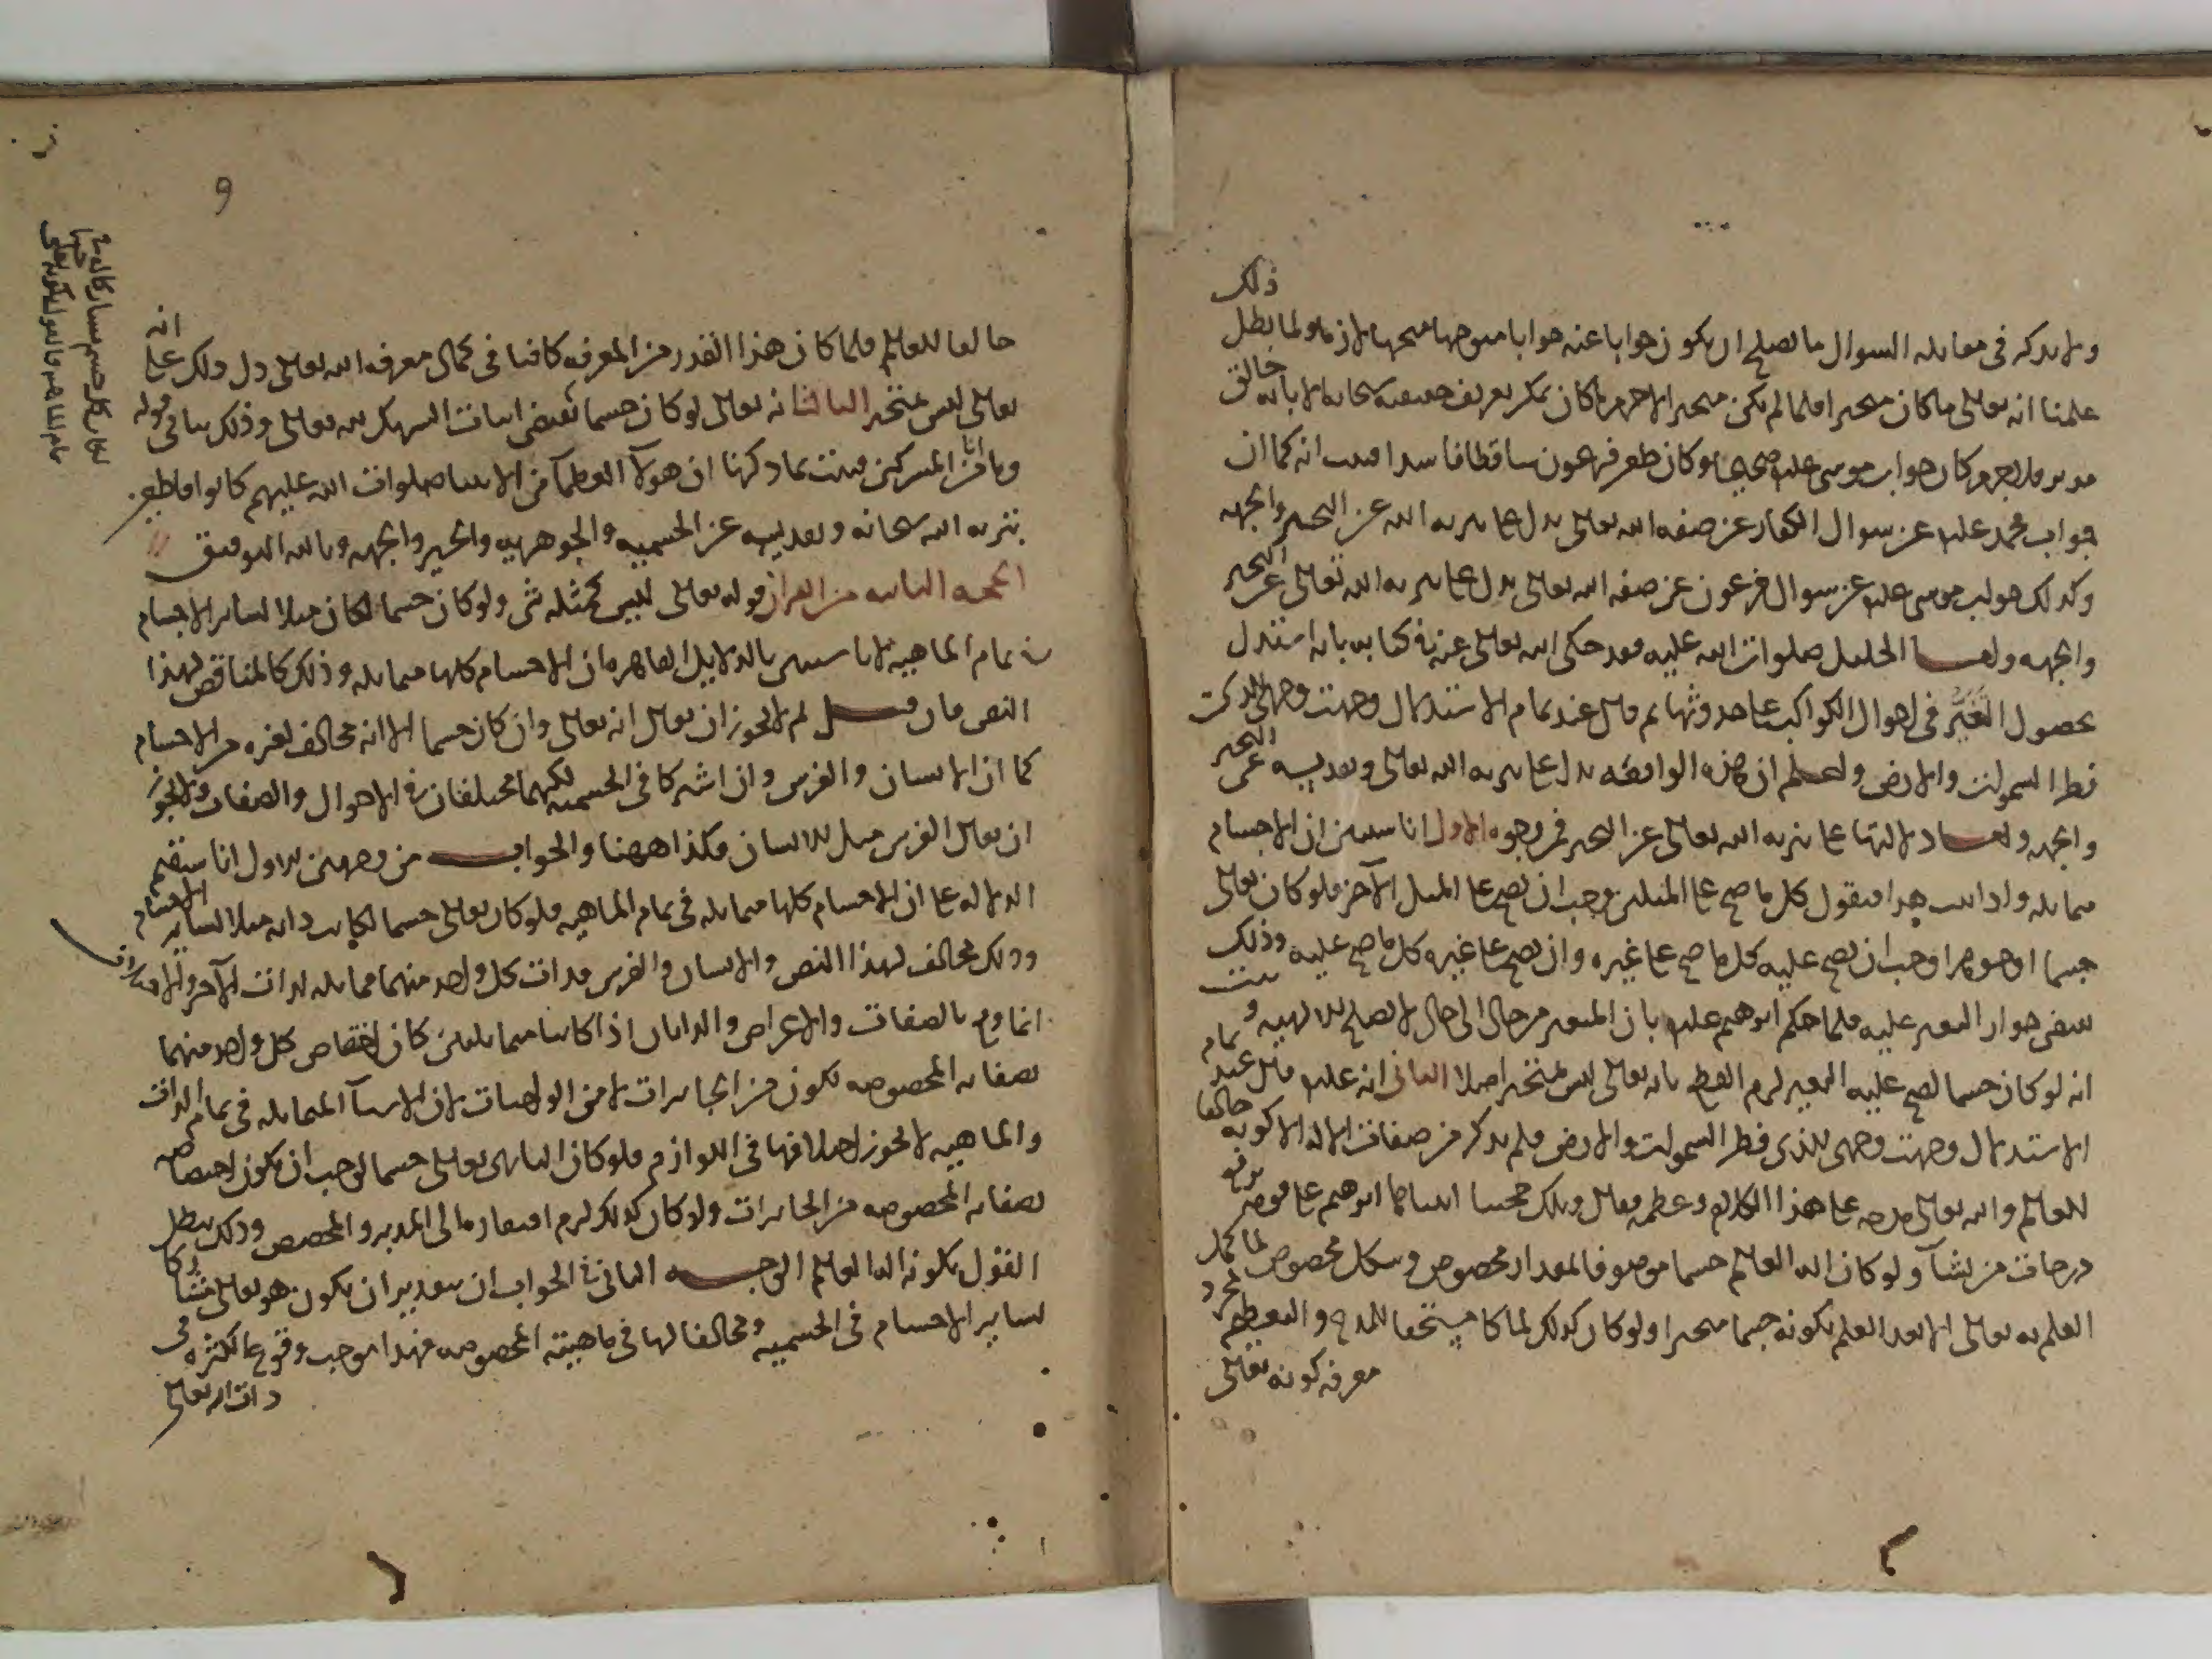 ذلك
ولا يذكر في مقابلة السوال ما يصلح ان يكون جوابا عنه جوابا متوجها متجها لازما ولما بطل
علمنا انه تعالى ما كان متحيزا فلما لم يكن متحيزا لا جرم ما كان يمكن تعريف حقيقته سبحانه الا بانه خالق
مدبر فلا جرم كان جواب موسى عليه صحيحا وكان طعن فرعون ساقطا فاسدا فثبت انه كما ان
جواب محمد عليه عن سوال الكفار عن صفة الله تعالى يدل على تنزيه الله عن التحيز والجهه
وكذلك جواب موسى عليه عن سوال فرعون عن صفة الله تعالى يدل على تنزيه الله تعالى عن التحيز
والجهه واما الخليل صلوات الله عليه فقد حكى الله تعالى عنه في كتابه بانه استدل
بحصول التغير في احوال الكواكب على حدوثها ثم قال عند تمام الاستدلال وجهت وجهي للذي
فطر السموات والارض واعلم ان هذه الواقعه تدل على تنزيه الله تعالى وتقديسه عن التحيز
والجهه واما دلالتها على تنزيه الله تعالى عن التحيز فمن وجوه الاول انا سنبين ان الاجسام
متماثله واذا ثبت هذا فنقول كل ما صح على احد المثلين وجب ان يصح على المثل الآخر فلو كان تعالى
جسما او جوهرا وجب ان يصح عليه كل ما صح على غيره وان يصح على غيره كل ما صح عليه وذلك
يقتضي جواز التغير عليه فلما حكم ابرهيم عليه بان المتغير من حال الى حال لا يصلح للالهيه وثبت
انه لو كان جسما لصح عليه التغير لزم القطع بانه تعالى ليس بمتحيز اصلا الثاني انه عليه قال عند تمام
الاستدلال وجهت وجهي للذي فطر السموات والارض فلم يذكر من صفات الاله الا كونه خالقا
للعالم والله تعالى مدحه على هذا الكلام وعظمه فقال وتلك حجتنا اتيناها ابرهيم على قومه نرفع
درجات من نشآ ولو كان اله العالم جسما موصوفا لمقدار مخصوص وشكل مخصوص لما كمل
العلم به تعالى الا بعد العلم بكونه جسما متحيزا ولو كان كذلك لما كان مستحقا للمدح والتعظيم بمجرد
معرفة كونه تعالى
9
خالقا للعالم فلما كان هذا القدر من المعرفه كافيا في كمال معرفة الله تعالى دل ذلك على انه
تعالى ليس بمتحيز الثالث انه تعالى لو كان جسما
وما انا من المشركين فثبت بما ذكرنا ان هولآ العظمآ من الانبيا صلوات الله عليهم كانوا قاطعين
بتنزيه الله سبحانه وتقديسه عن الجسميه والجوهريه والحيز والجهه وبالله التوفيق
الحجه الثانيه من القران قوله تعالى ليس كمثله شي ولو كان جسما لكان مثلا لساير الاجسام
في تمام الماهيه لانا سنبين بالدلايل القاهره ان الاجسام كلها متماثله وذلك كالمناقض لهذا
النص فان قيل لم لا يجوز ان يقال انه تعالى وان كان جسما الا انه مخالف لغيره من الاجسام
كما ان الانسان والفرس وان اشتركا في الجسميه لكنهما مختلفان في الاحوال والصفات ولا يجوز
ان يقال الفرس مثل للانسان فكذا ههنا والجواب من وجهين الاول انا سنقيم
الدلاله على ان الاجسام كلها متماثله في تمام الماهيه فلو كان تعالى جسما لكانت ذاته مثلا لساير الاجسام
وذلك مخالف لهذا النص والانسان والفرس فذات كل واحد منهما مماثله لذات الآخر والافتراق
انما وقع بالصفات والاعراض والذاتان اذا كانتا متماثلتين كان اختصاص كل واحد منهما
بصفاته المخصوصه يكون من الجايزات لا من الواجبات لان الاشيآ المتماثله في تمام الذات
والماهيه لا يجوز اختلافها في اللوازم فلو كان الباري تعالى جسما لوجب ان يكون اختصاصه
بصفاته المخصوصه من الجايزات ولو كان كذلك لزم افتقارها الى المدبر والمخصص وذلك يبطل
القول بكونه اله العالم الوجه الثاني في الجواب ان بتقدير ان يكون هو تعالى مشاركا
لساير الاجسام في الجسميه ومخالفا لها في ماهيته المخصوصه فهذا يوجب وقوع الكثره في
ذات الله تعالى